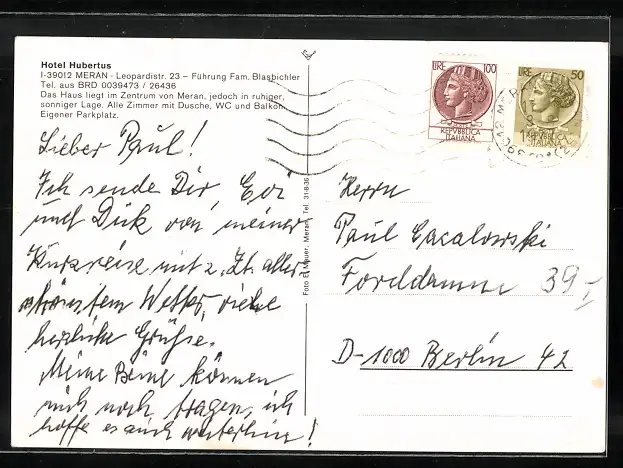 Hotel Hubertus
I-39012 MERAN - Leopardistr. 23 – Führung Fam. Blasbichler
Tel. aus BRD 0039473 / 26436
Das Haus liegt im Zentrum von Meran, jedoch in ruhiger,
sonniger Lage. Alle Zimmer mit Dusche, WC und Balkon.
Eigener Parkplatz.
Lieber Paul!
Ich sende Dir, Evi
und Dirk von meiner
Kurzreise mit z. Zt. aller
schönstem Wetter, viele
herzliche Grüße.
Meine Beine können
mich noch tragen, ich
hoffe es auch weiterhin!
Foto E. Mauer, Meran, Tel. 31-8-36
LIRE 100
REPVBBLICA
ITALIANA
LIRE 50
REPVBBLICA
ITALIANA
Herrn
Paul
39 I
D-1000 Berlin 42